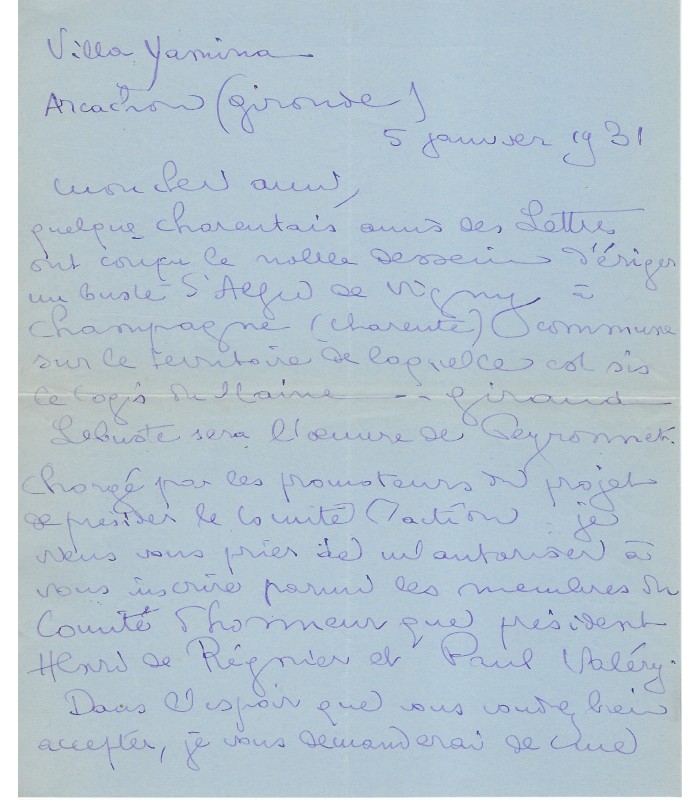 Villa Yamina
Arcachon (Gironde)
5 janvier 1931
Mon cher ami,
quelques charentais amis des Lettres
ont conçu le noble dessein d'ériger
un buste d'Alfred de Vigny à
Champagne (Charente) commune
sur le territoire de laquelle est sis
le logis du Maine - - giraud
Le buste sera l'œuvre de Peyronnet.
Chargé par les promoteurs du projet
de présider le Comité d'action je
viens vous prier de m'autoriser à
vous inscrire parmi les membres du
Comité d'honneur que président
Henri de Régnier et Paul Valéry.
Dans l'espoir que vous voudrez bien
accepter, je vous demanderai de me